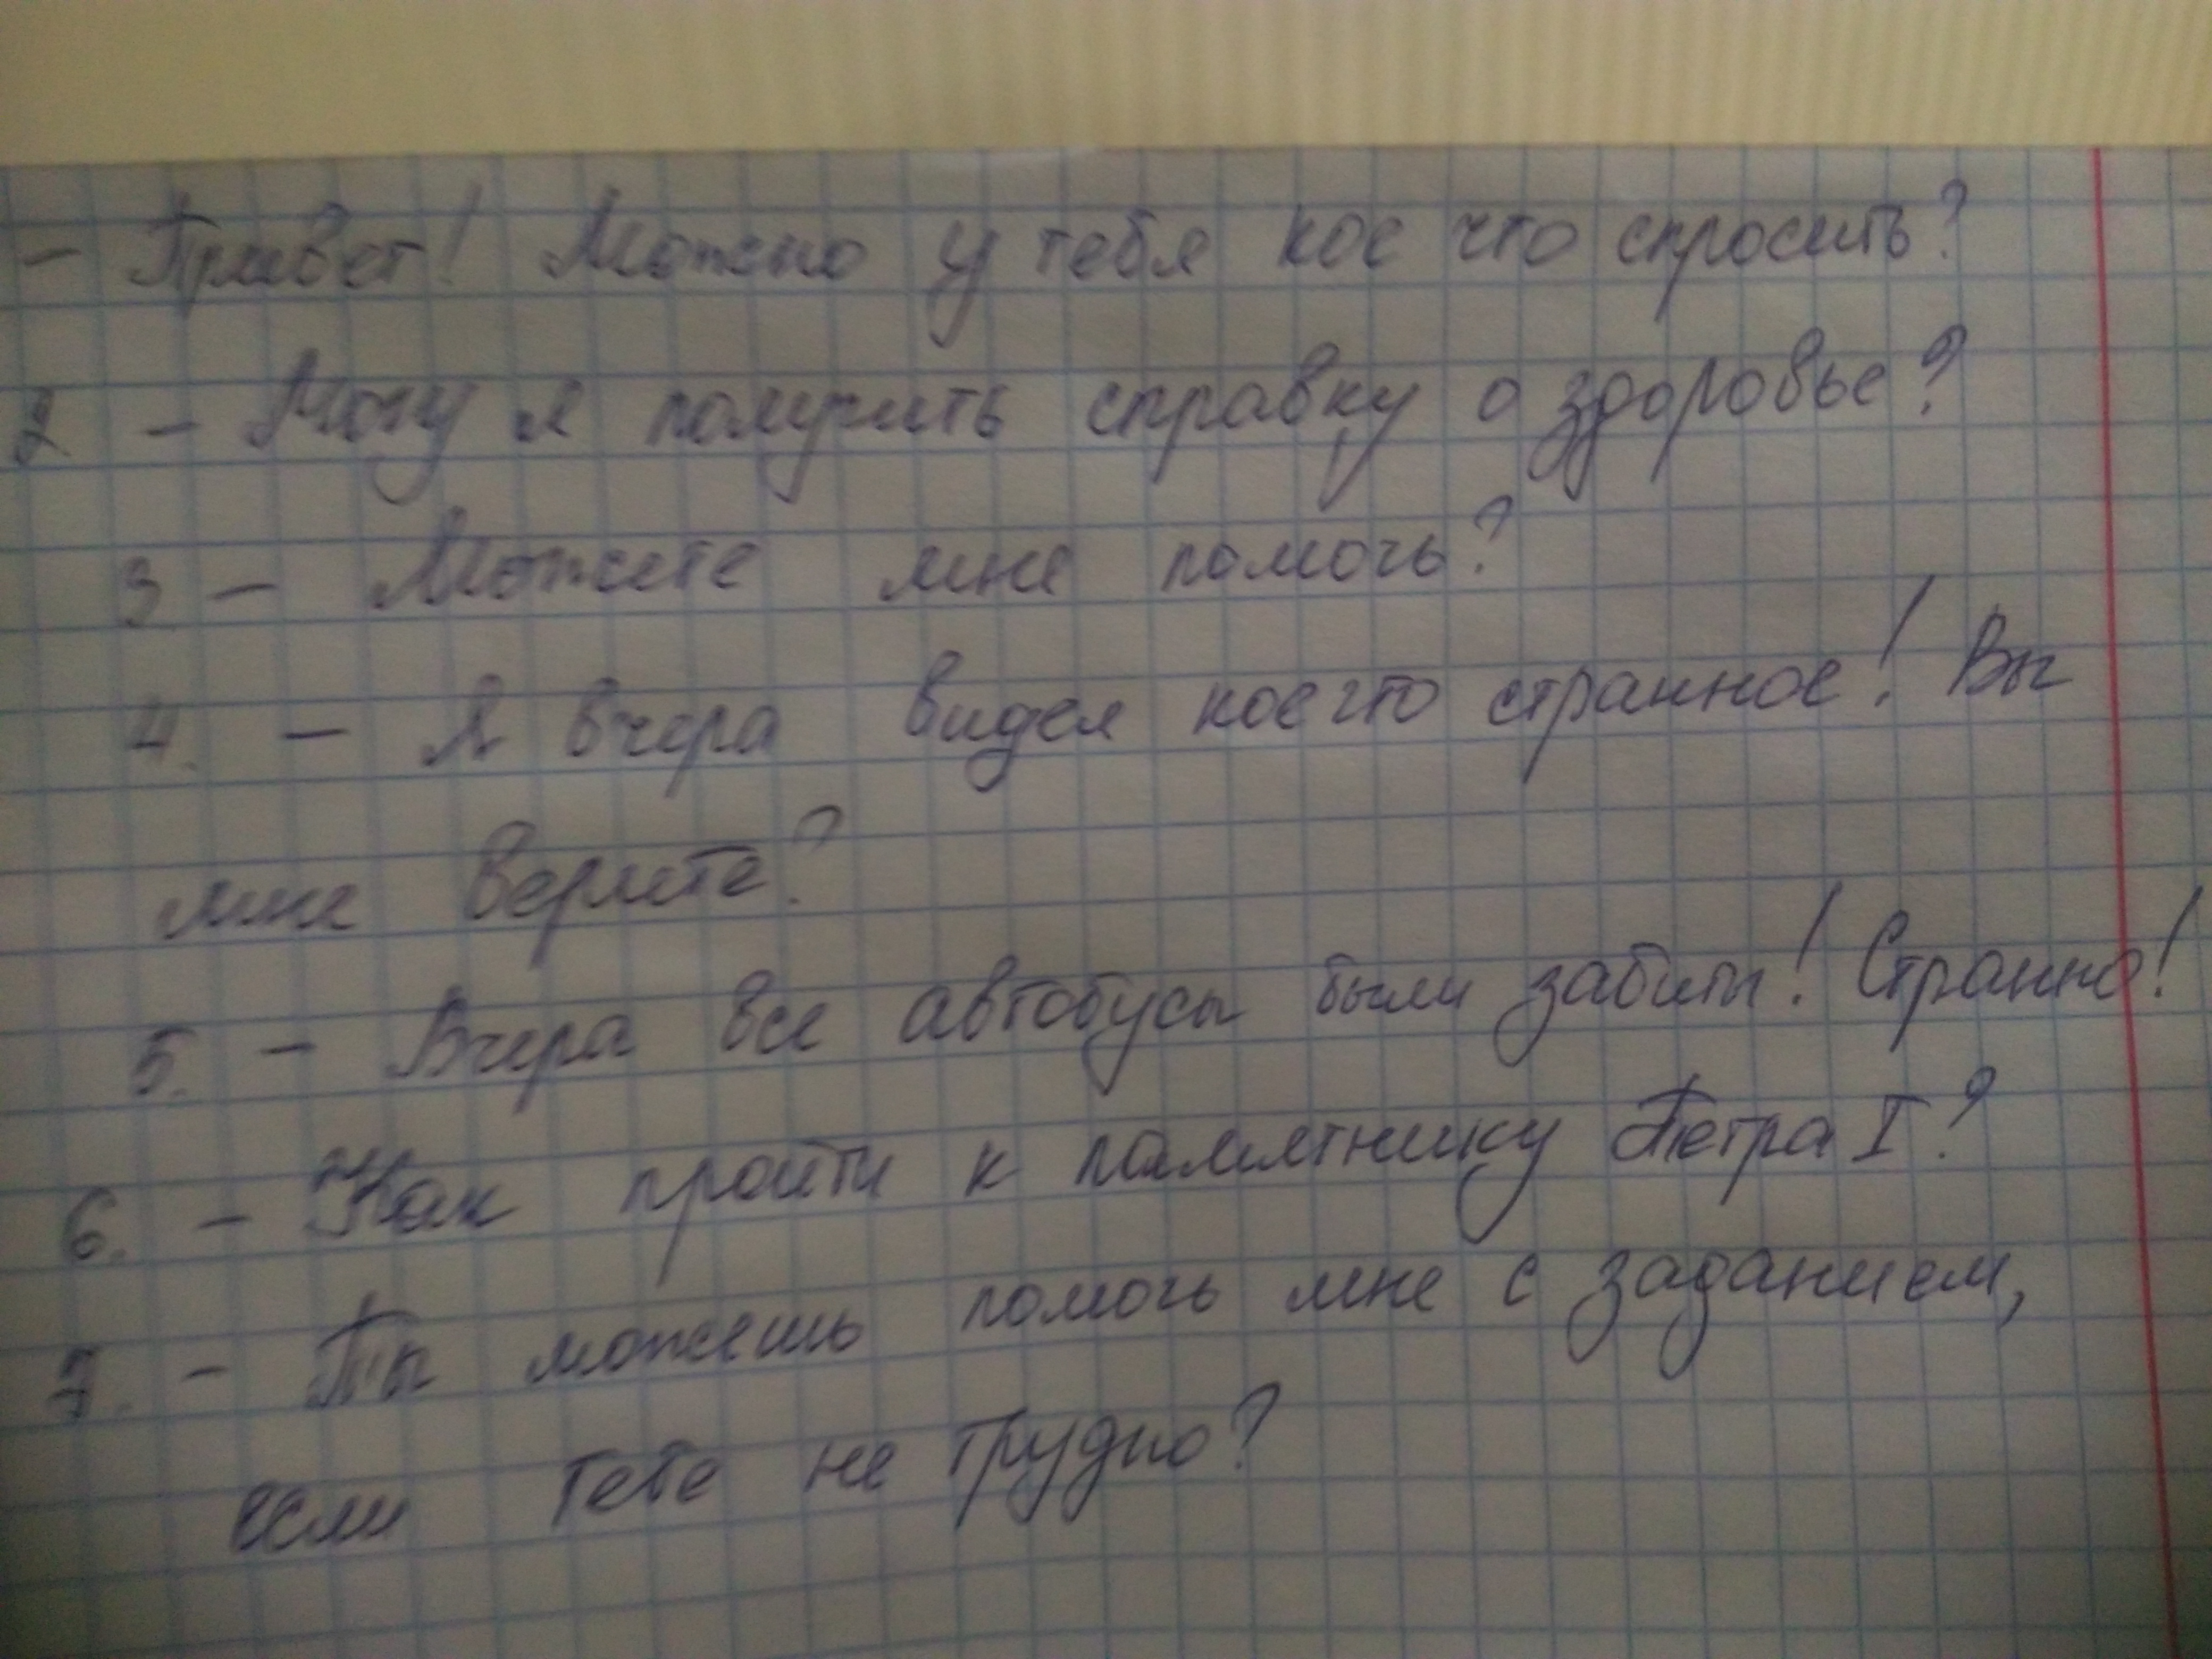 - Привет! Можно у тебя кое что спросить?
2 - Могу я получить справку о здоровье?
3 - Можете мне помочь?
4. - Я вчера видел кое что странное! Вы
мне верите?
5. - Вчера все автобусы были забиты! Странно!
6. - Как пройти к памятнику Петра I?
7. - Ты можешь помочь мне с заданием,
если тебе не трудно?